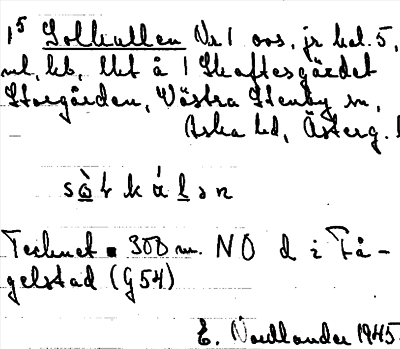 15 Solkullen Nr 1 oos, jr kol. 5,
ml, kb, lkt å 1 Skaftesgärdet
Storgården, Västra Stenby sn,
Aska hd, Österg. l
Tecknet 300 m. NO d i Få-
gelstad (G54)
E. Nordlander 1945.